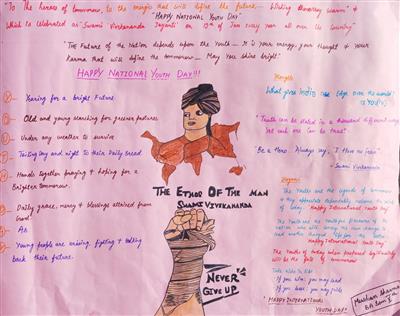 "To the heroes of tomorrow, to the energies that will define the future — Wishing
HAPPY NATIONAL YOUTH DAY"
Which is celebrated as "Swami Vivekananda Jayanti" on 12th of Jan every year all over the Country"
"The Future of the Nation depends upon the Youth — it is your energy, your thought & your
Karma that will define the tomorrow — May you shine bright"
HAPPY NATIONAL YOUTH DAY!!!
Yearing for a bright Future.
Old and young searching for greener pastures
Under any weather to survive
Toiling day and night to their Daily bread
Hands together praying & hoping for a
Brighter tomorrow.
Daily grace, mercy & blessings attained from
Young people are arising, fighting & taking
back their future.
THE ETHOR OF THE MAN
SWAMI VIVEKANANDA
NEVER
GIVE UP
Thought
What gives India an Edge over the world?
"Truth can be stated in a thousand different ways
Yet each one Can be true"
"Be a Hero. Always say, I Have no fear"
- Swami Vivekananda
Slogans
The Youth are the legends of tomorrow
Happy International Youth Day
The Youths are the youthful
nation who will the change to
Happy International Youth Day"
The Youth of today when prepared
will be the of tomorrow
Take Risks in Life
If you win, you may lead
If you lose, you may guide
"HAPPY INTERNATIONAL
YOUTH DAY"
Muskan Sharma